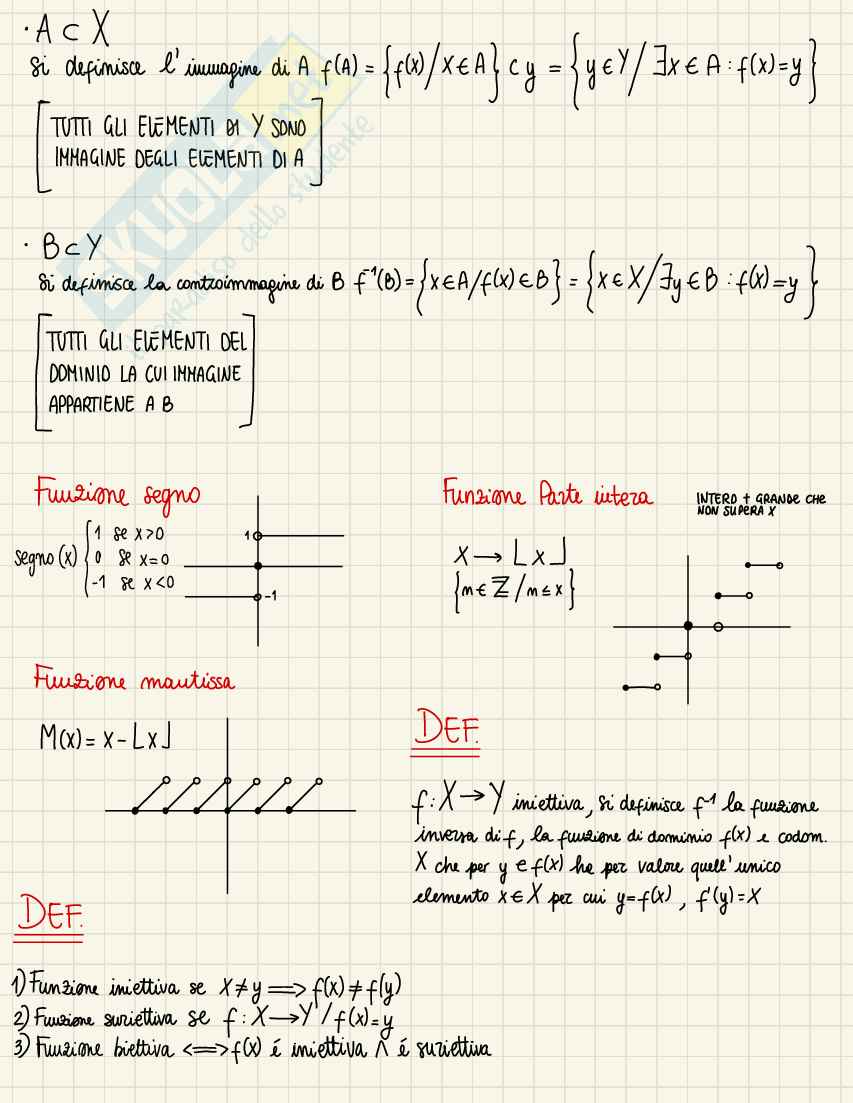 · A ⊂ X
Si definisce l'immagine di A f(A) = {f(x) / x ∈ A} ⊂ y = {y ∈ Y / ∃x ∈ A : f(x) = y}
[TUTTI GLI ELEMENTI DI Y SONO
IMMAGINE DEGLI ELEMENTI DI A]
SKUOLA.net
il paradiso dello studente
· B ⊂ Y
Si definisce la controimmagine di B f⁻¹(B) = {x ∈ A / f(x) ∈ B} = {x ∈ X / ∃y ∈ B : f(x) = y}
[TUTTI GLI ELEMENTI DEL
DOMINIO LA CUI IMMAGINE
APPARTIENE A B]
Funzione segno
segno (x) { 1 se x > 0
0 se x = 0
-1 se x < 0
1
-1
Funzione Parte intera
INTERO + GRANDE CHE
NON SUPERA X
X → ⌊x⌋
{m ∈ ℤ / m ≤ x}
Funzione mantissa
M(x) = x - ⌊x⌋
DEF.
f : X → Y iniettiva, si definisce f⁻¹ la funzione
inversa di f, la funzione di dominio f(x) e codom.
X che per y ∈ f(x) ha per valore quell'unico
elemento x ∈ X per cui y = f(x), f'(y) = X
DEF.
1) Funzione iniettiva se x ≠ y ⟹ f(x) ≠ f(y)
2) Funzione suriettiva se f : X → Y / f(x) = y
3) Funzione biettiva <=> f(x) é iniettiva ∧ é suriettiva